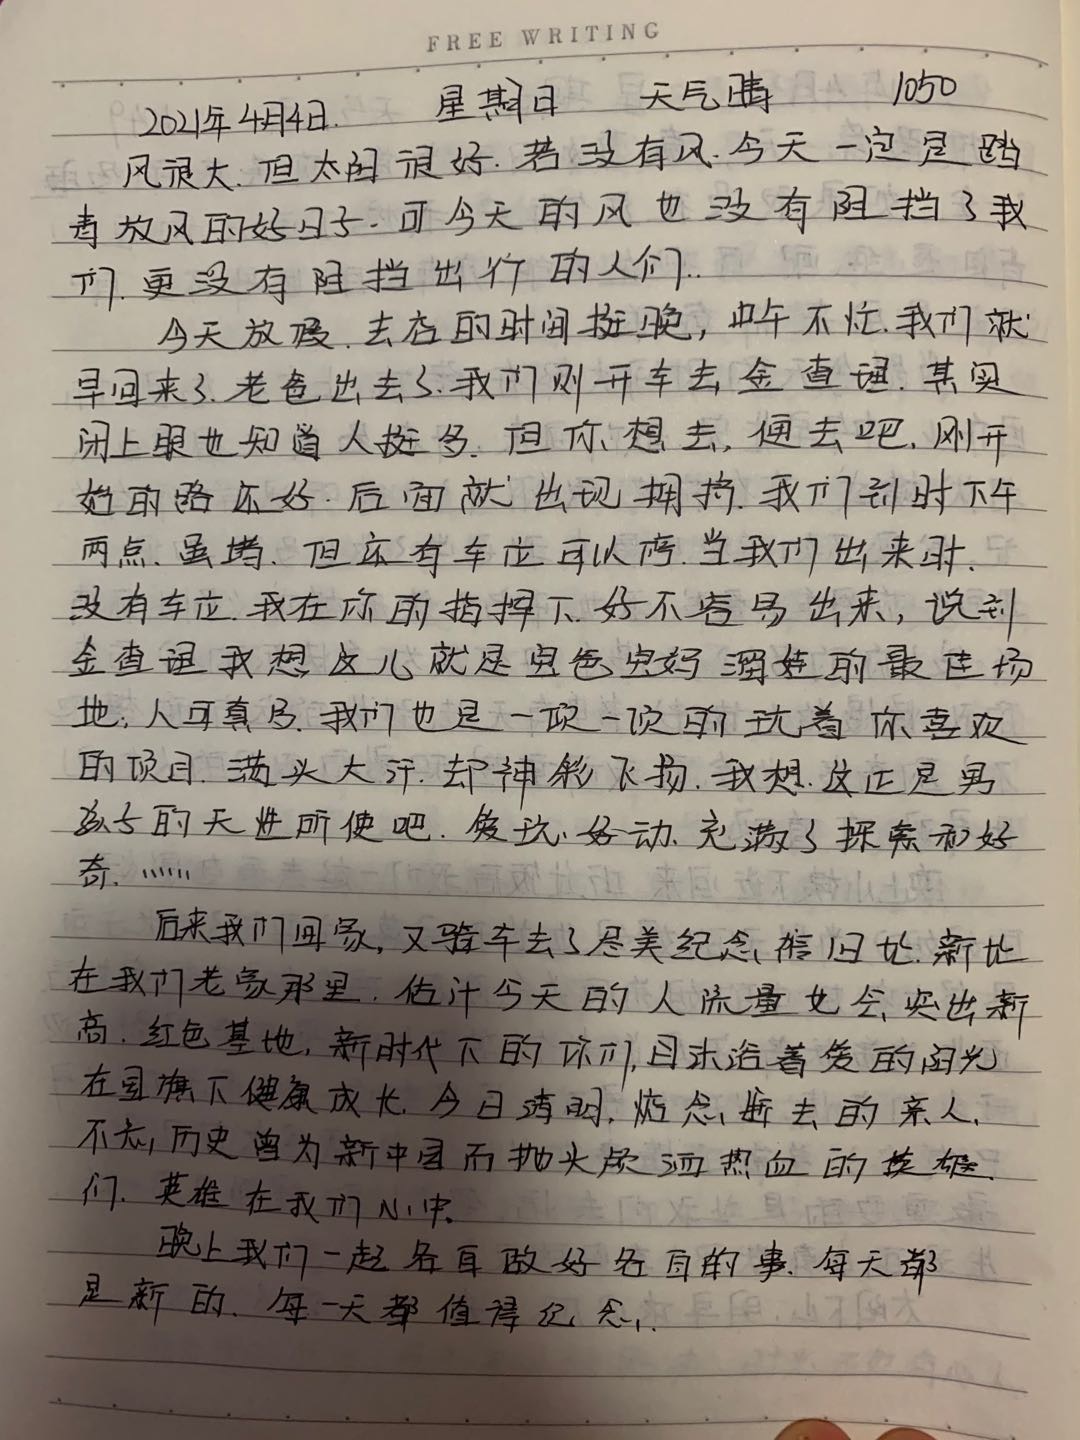 FREE WRITING
2021年4月4日. 星期日 天气晴 1050
风很大.但太阳很好.若没有风.今天一定是踏
青放风的好日子.可今天的风也没有阻挡了我
们.更没有阻挡出行的人们..
今天放假.去店的时间挺晚，中午不忙.我们就
早回来了.老爸出去了.我们则开车去金查理.其实
闭上眼也知道人挺多.但你想去,便去吧,刚开
始的路还好.后面就出现拥挤.我们到时下午
两点.虽堵.但还有车位可以停.当我们出来时.
没有车位.我在你的指挥下.好不容易出来，说到
金查理我想这儿就是宝爸宝妈溜娃的最佳场
地.人可真多.我们也是一项一项的玩着你喜欢
的项目.满头大汗.却神彩飞扬.我想.这正是男
孩子的天性所使吧.爱玩.好动.充满了探索和好
奇. ......
后来我们回家,又骑车去了尽美纪念馆旧址.新址
在我们老家那里.估计今天的人流量又会突出新
高.红色基地,新时代下的你们,目沐浴着爱的阳光
在国旗下健康成长.今日清明,悼念逝去的亲人.
不忘历史曾为新中国而抛头颅洒热血的英雄.
们.英雄在我们心中.
晚上我们一起各自做好各自的事.每天都
是新的.每一天都值得纪念.